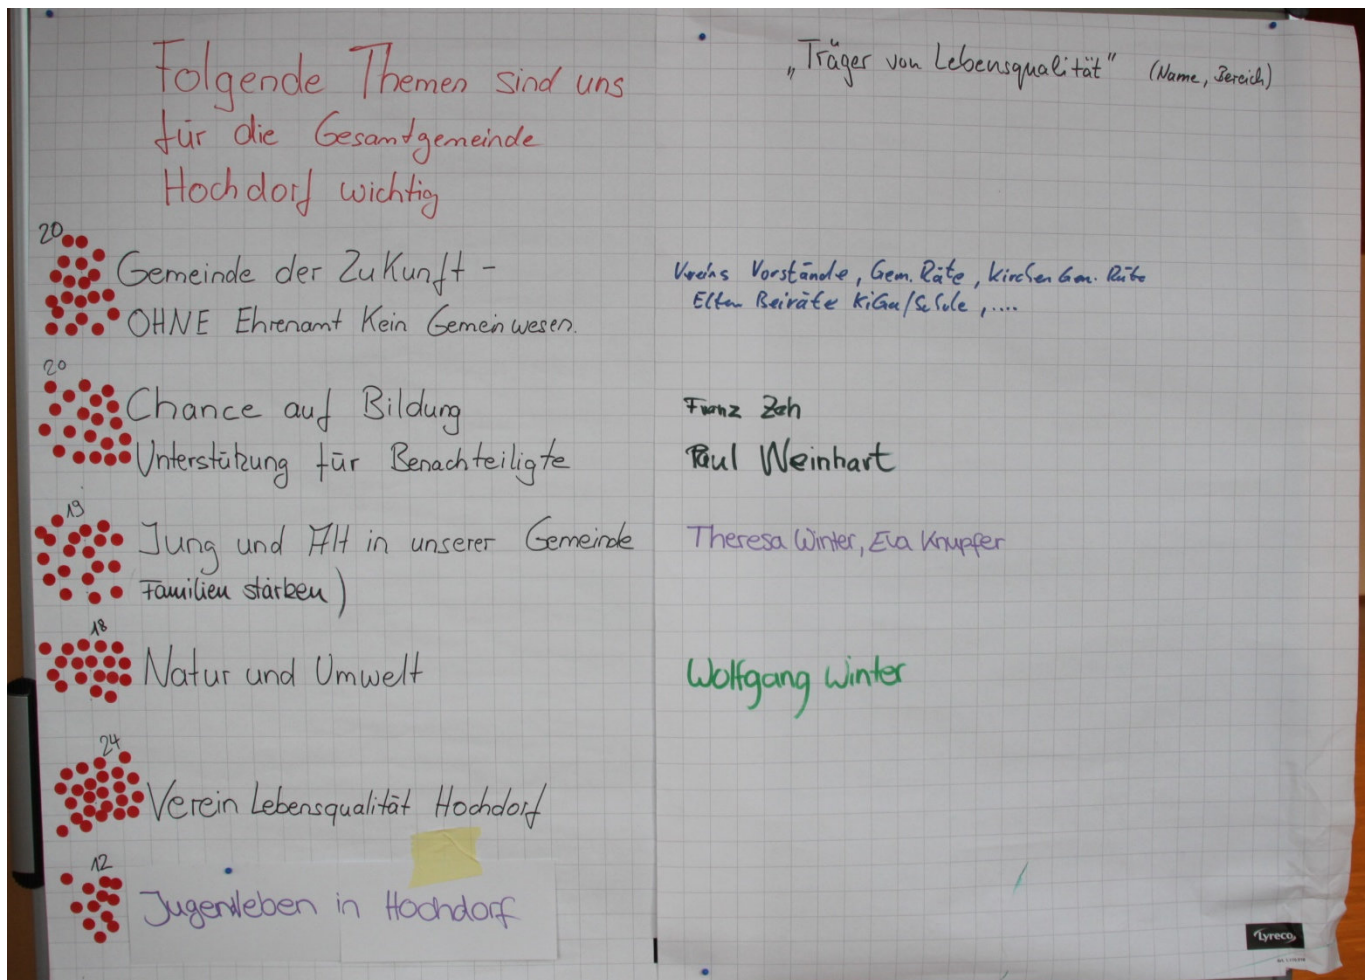 Folgende Themen sind uns
für die Gesamtgemeinde
Hochdorf wichtig
„Träger von Lebensqualität" (Name, Bereich)
20
Gemeinde der Zukunft -
OHNE Ehrenamt Kein Gemeinwesen.
Vereins Vorstände, Gem. Räte, Kirchen Gem. Räte
Eltern Beiräte KiGa/Schule, ....
20
Chance auf Bildung
Unterstützung für Benachteiligte
Franz Zeh
Paul Weinhart
19
Jung und Alt in unserer Gemeinde
(Familien stärken)
Theresa Winter, Eva Knupfer
18
Natur und Umwelt
Wolfgang Winter
24
Verein Lebensqualität Hochdorf
12
Jugendleben in Hochdorf
Lyreco